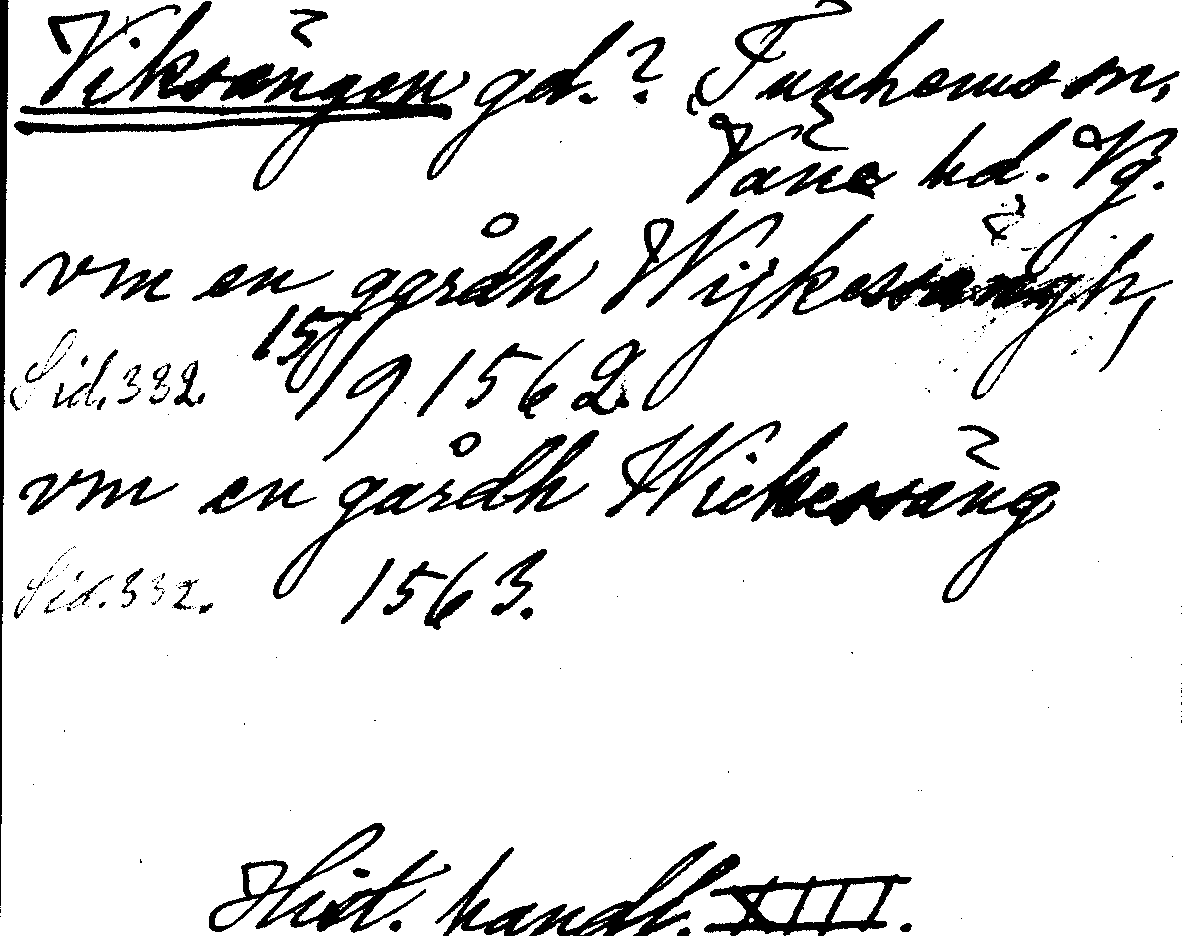 Viksängen gd.? Tunhems sn,
Väne hd. Vg.
vm en gårdh Wijkessängh,
Sid. 332. 15/9 1562.
vm en gårdh Wickessäng
Sid. 332. 1563.
Hist. handl. XIII.